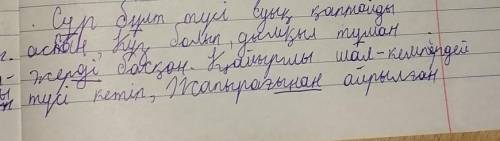 . Сұр бұлт түсі суық қаптайды
г. аспан, Күз болып, дымқыл тұман
- жерді басқан. Қайыршы шал-кемпірдей
ы түсі кетіп, Жапырағынан айрылған